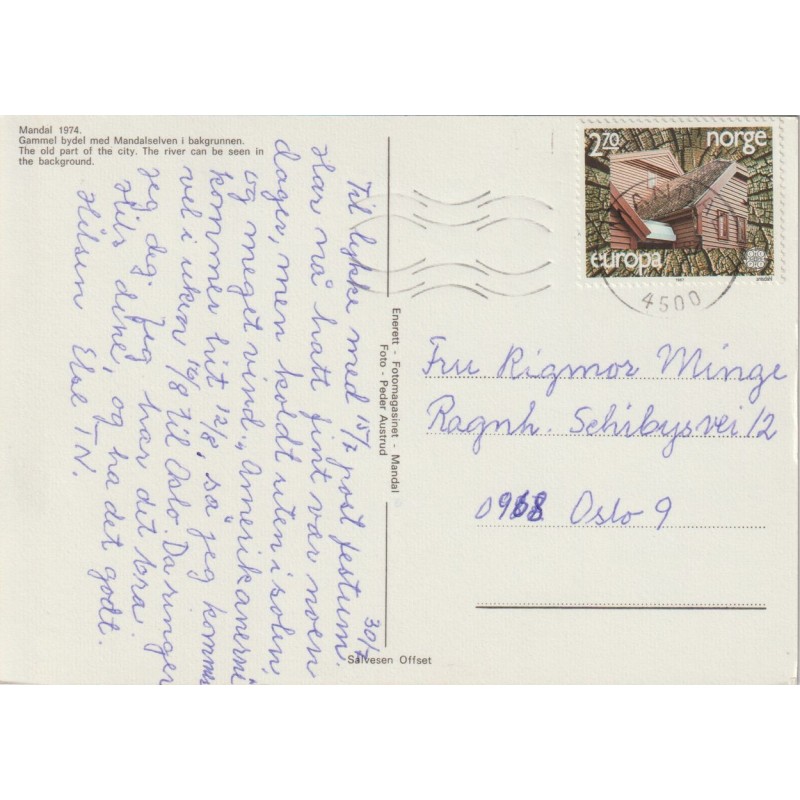 Mandal 1974.
Gammel bydel med Mandalselven i bakgrunnen.
The old part of the city. The river can be seen in
the background.
30/7
Til lykke med 15/7 post festum.
Har nå hatt fint vær noen
dager, men koldt uten i solen,
og meget vind. "Amerikanerne"
kommer hit 12/8, så jeg kommer
vel i uken 16/8 til Oslo. Da ringer
jeg deg. Jeg har det bra.
Hils dine, og ha det godt.
Hilsen Else T N.
Enerett - Fotomagasinet - Mandal
Foto - Peder Austrud
Salvesen Offset
2.70
norge
europa
4500
Fru Rigmor Minge
Ragnh. Schibysvei 12
0968 Oslo 9